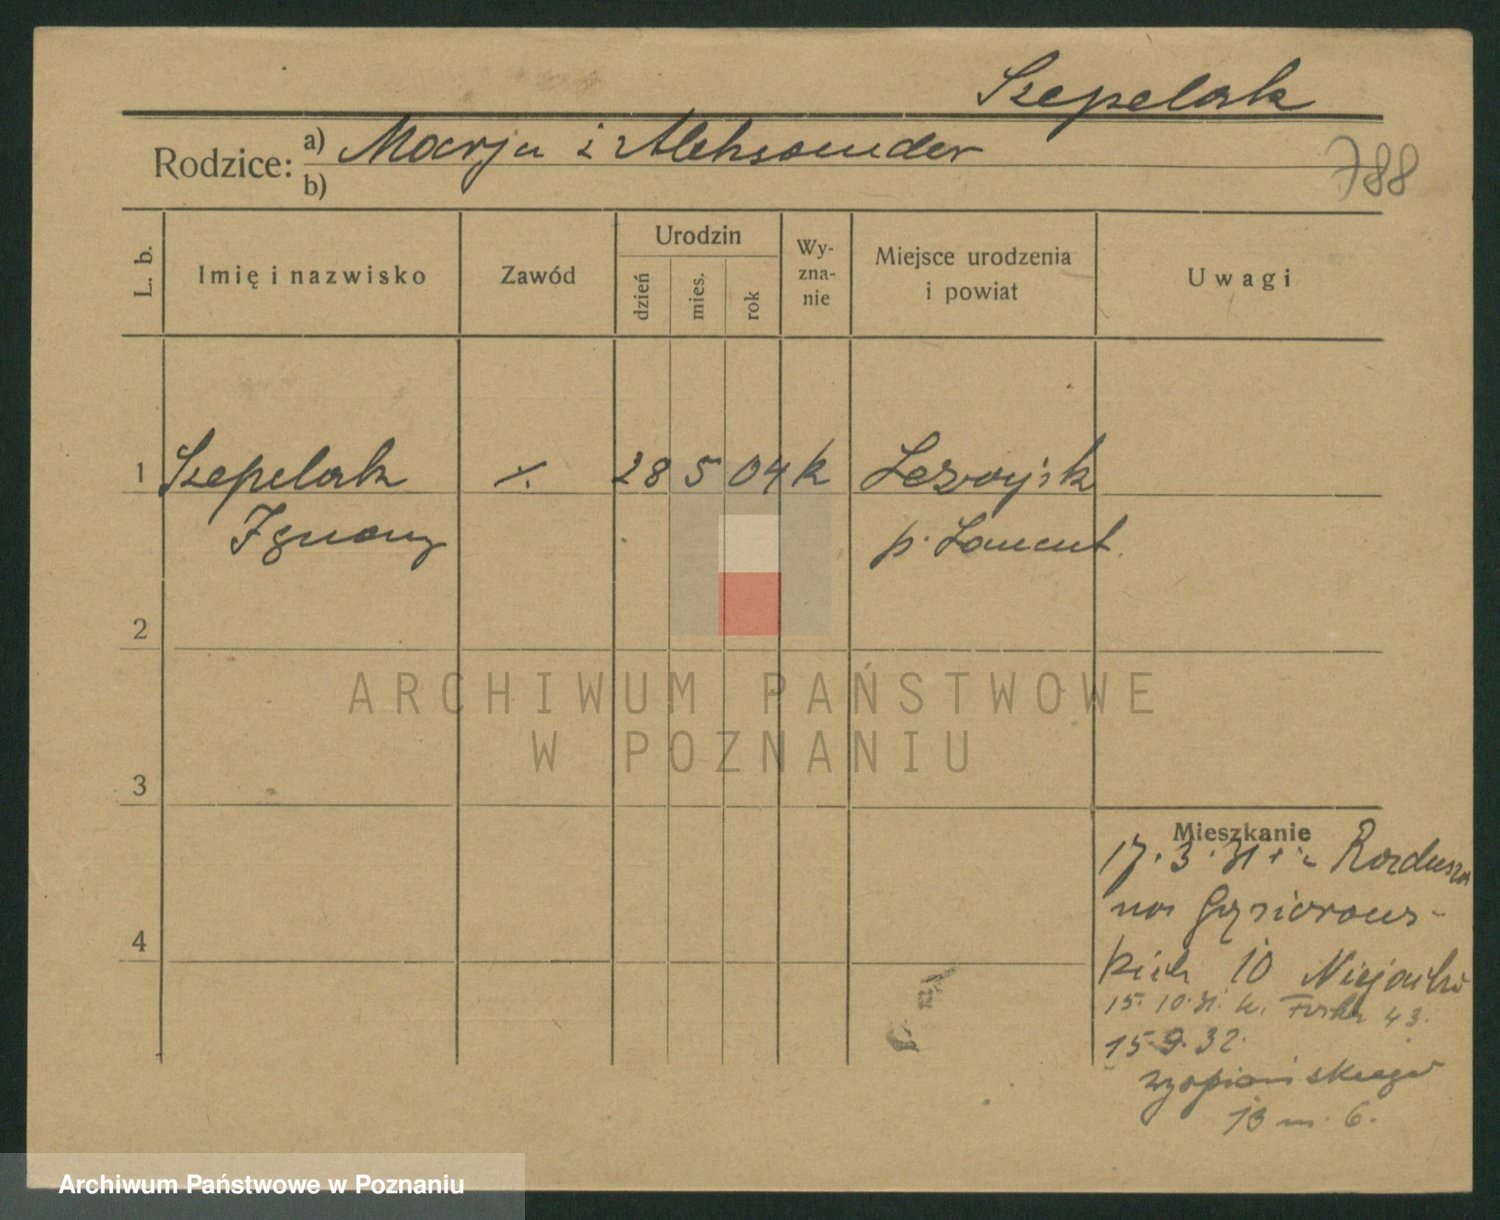 Szepelak
Rodzice: a) Marja i Aleksander
b)
788
L. b.
Imię i nazwisko
Zawód
Urodzin
dzień
mies.
rok
Wy-
zna-
nie
Miejsce urodzenia
i powiat
Uwagi
1 Szepelak ٪. 28 5 04 k Leżajsk
Ignacy p. Łańcut
2
ARCHIWUM PAŃSTWOWE
W POZNANIU
3
Mieszkanie
17. 3. 31 z
na Gąsiorows-
kich 10
4
15. 10. 31. 43.
15. 9. 32.
Wyspiańskiego
13 m. 6.
Archiwum Państwowe w Poznaniu